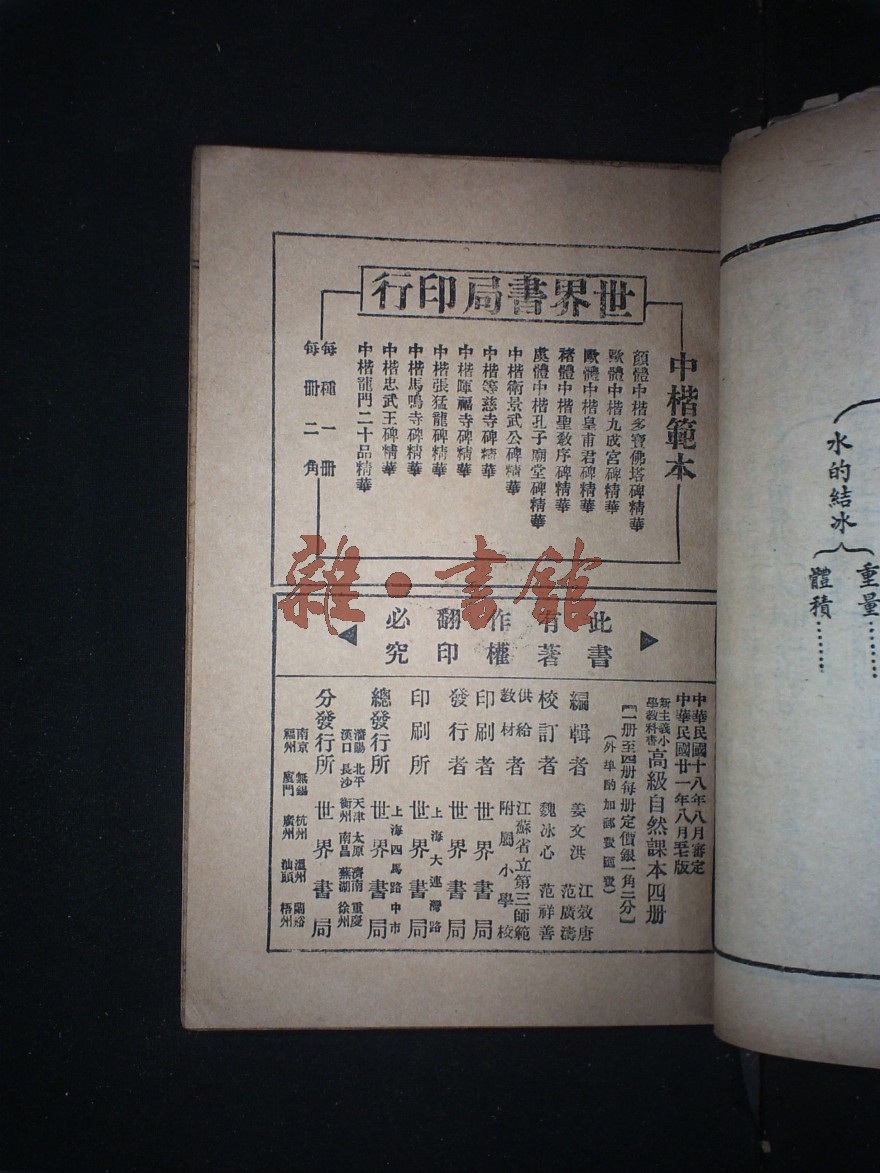 世界書局印行
中楷範本
顏體中楷多寶佛塔碑精華
歐體中楷九成宮碑精華
歐體中楷皇甫君碑精華
褚體中楷聖敎序碑精華
虞體中楷孔子廟堂碑精華
中楷衛景武公碑精華
中楷等慈寺碑精華
中楷暉福寺碑精華
中楷張猛龍碑精華
中楷馬鳴寺碑精華
中楷忠武王碑精華
中楷龍門二十品精華
每種一册
每册二角
雜·書館
此書
有著
作權
翻印
必究
中華民國十八年八月審定
中華民國廿一年八月
版
新主義小學敎科書
高級自然課本四册
【一册至四册每册定價銀一角二分】
(外埠酌加郵費匯費)
編輯者 姜文洪 江效唐 范廣濤
校訂者 魏冰心 范祥善
供給敎材者 江蘇省立第三師範附屬小學校
印刷者 世界書局
發行者 世界書局
印刷所 上海大連灣路 世界書局
總發行所 上海四馬路中市 世界書局
分發行所 世界書局
瀋陽 北平 天津 太原 濟南 重慶
漢口 長沙 衡州 南昌 蕪湖 徐州
南京 無錫 杭州 溫州 蘭谿
福州 廈門 廣州 汕頭 梧州
水的結冰
重量………
體積………